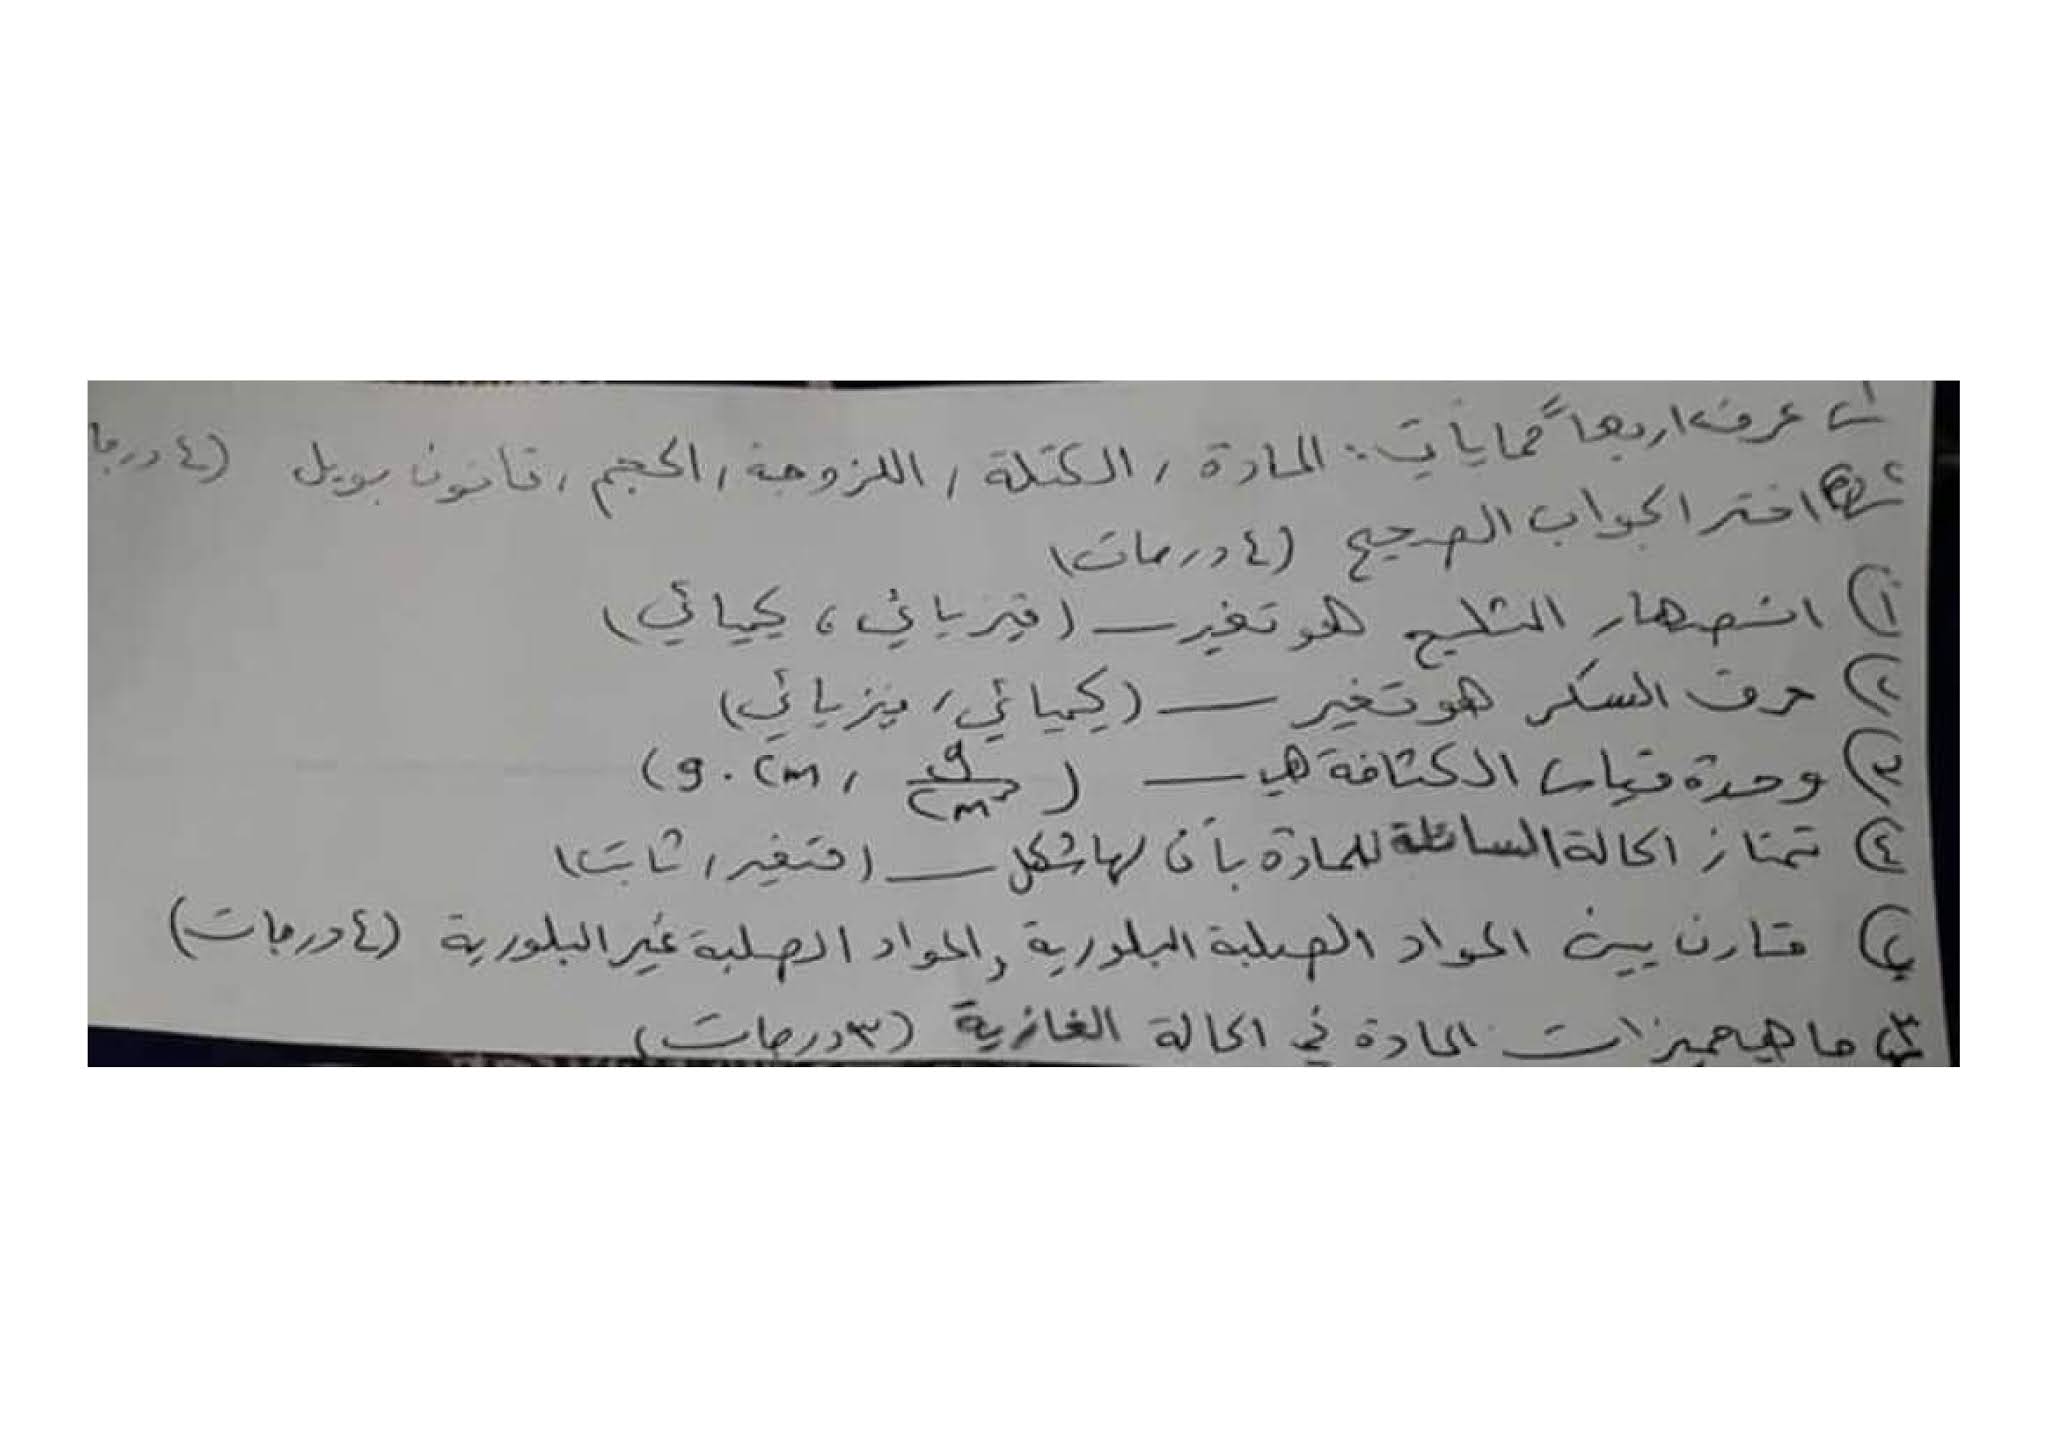 س١ عرف اربعاً مما يأتي: المادة / الكتلة / اللزوجة / الحجم / قانون بويل (٤ درجا
س٢ اختر الجواب الصحيح (٤ درجات)
١) انصهار الثليج هو تغير ــ (فيزيائي ، كيميائي)
٢) حرق السكر هو تغير ــ (كيميائي / فيزيائي)
٣) وحدة قياس الكثافة هي ــ (g/cm³ , g.cm)
٤) تمتاز الحالة السائلة للمادة بأن لها شكل ــ (متغير / ثابت)
قارن بين المواد الصلبة البلورية والمواد الصلبة غير البلورية (٤ درجات)
ما هي مميزات المادة في الحالة الغازية (٣ درجات)